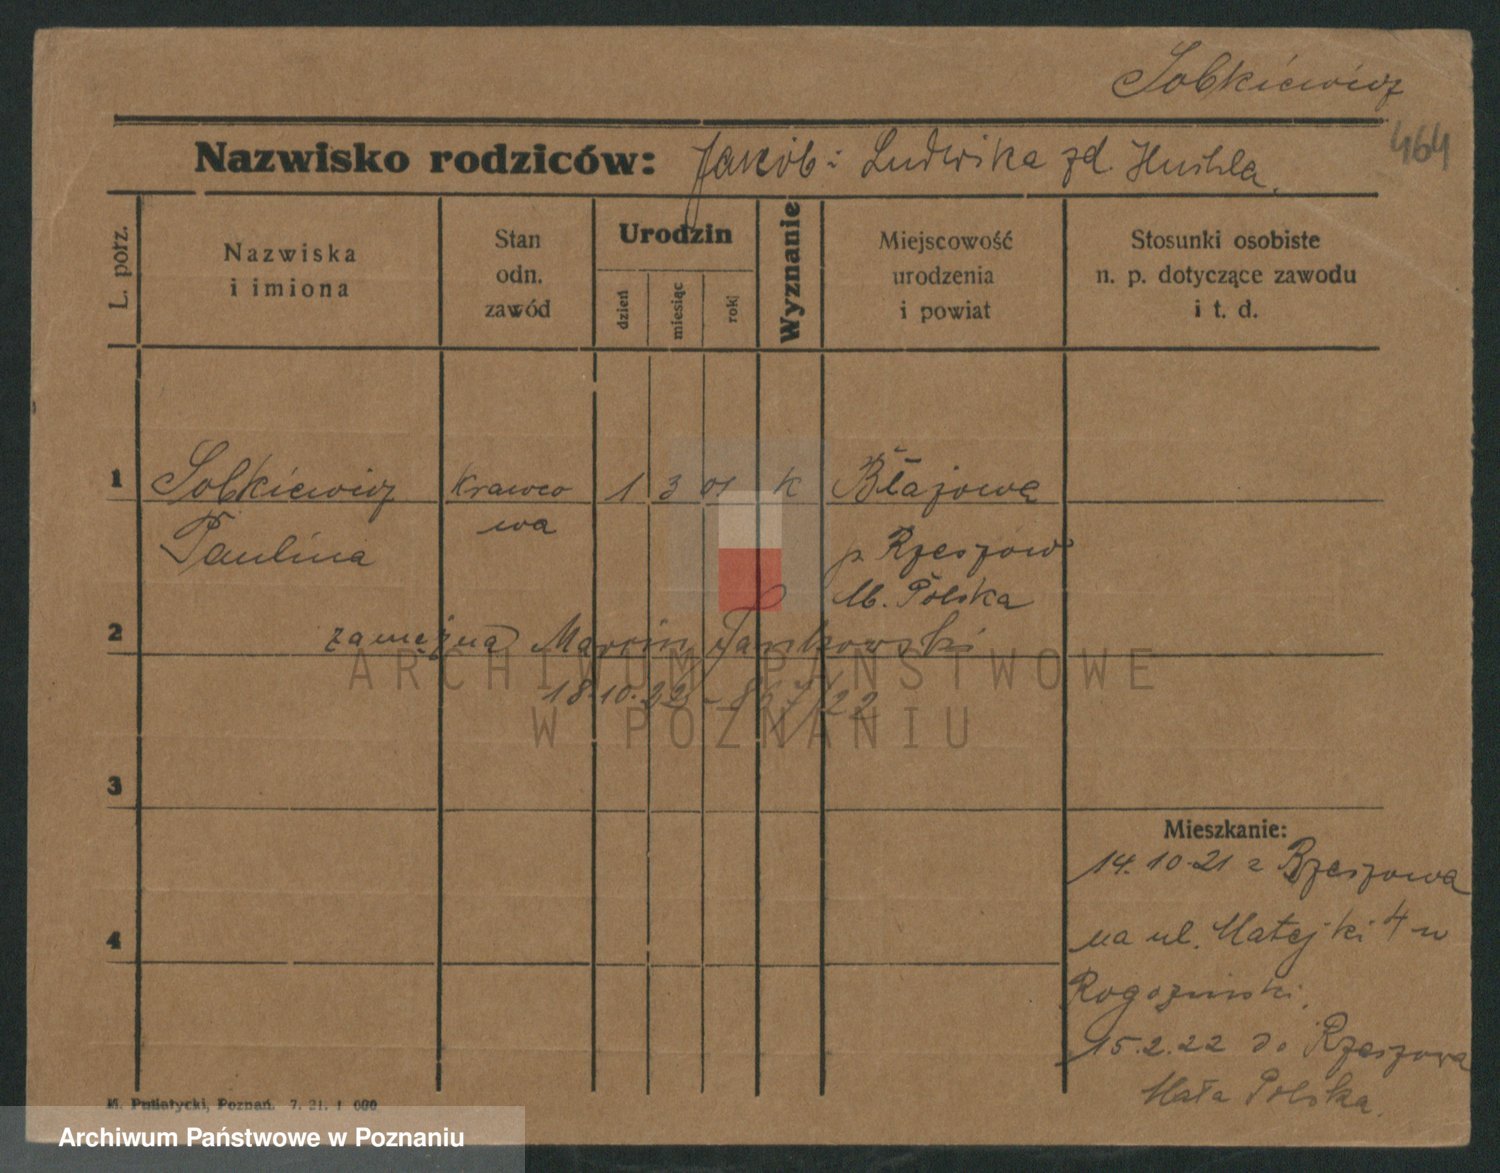 Sobkiewicz
464
Nazwisko rodziców: Jakób i Ludwika zd.
L. porz.
Nazwiska
i imiona
Stan
odn.
zawód
Urodzin
dzień
miesiąc
rok
Wyznanie
Miejscowość
urodzenia
i powiat
Stosunki osobiste
n. p. dotyczące zawodu
i t. d.
1 Sobkiewicz krawco 1 3 01 k Błażowa
Paulina wa
p. Rzeszów
M. Polska
2 zamężna Marcin Jankowski
18.10.22 - 867/22
3
4
Mieszkanie:
14.10.21 z Rzeszowa
na ul. Matejki 4 u
Rogozinski.
15.2.22 do Rzeszowa
Mała Polska.
M. Putiatycki, Poznań. 7. 21. 1 000
ARCHIWUM PAŃSTWOWE
W POZNANIU
Archiwum Państwowe w Poznaniu